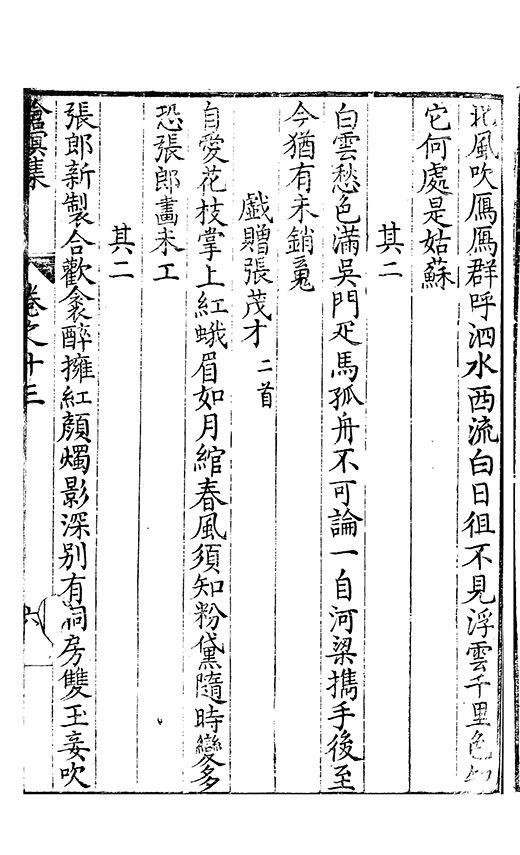 北風吹鴈鴈群呼泗水西流白日徂不見浮雲千里色知
它何處是姑蘇
其二
白雲愁色滿吳門疋馬孤舟不可論一自河梁攜手後至
今猶有未銷䰟
戲贈張茂才二首
自愛花枝掌上紅蛾眉如月綰春風須知粉黛隨時變多
恐張郎畫未工
其二
張郎新製合歡衾醉擁紅顏燭影深別有洞房雙玉妾吹
滄溟集 卷之十三 六